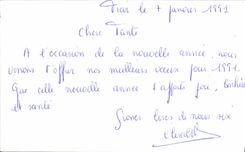 le 7 janvier 1991
Chère Tante
A l'occasion de la nouvelle année, nous
venons t'offrir nos meilleurs voeux pour 1991
Que cette nouvelle année t'apporte joie, bonheur
et santé
Grosses bises de nous six